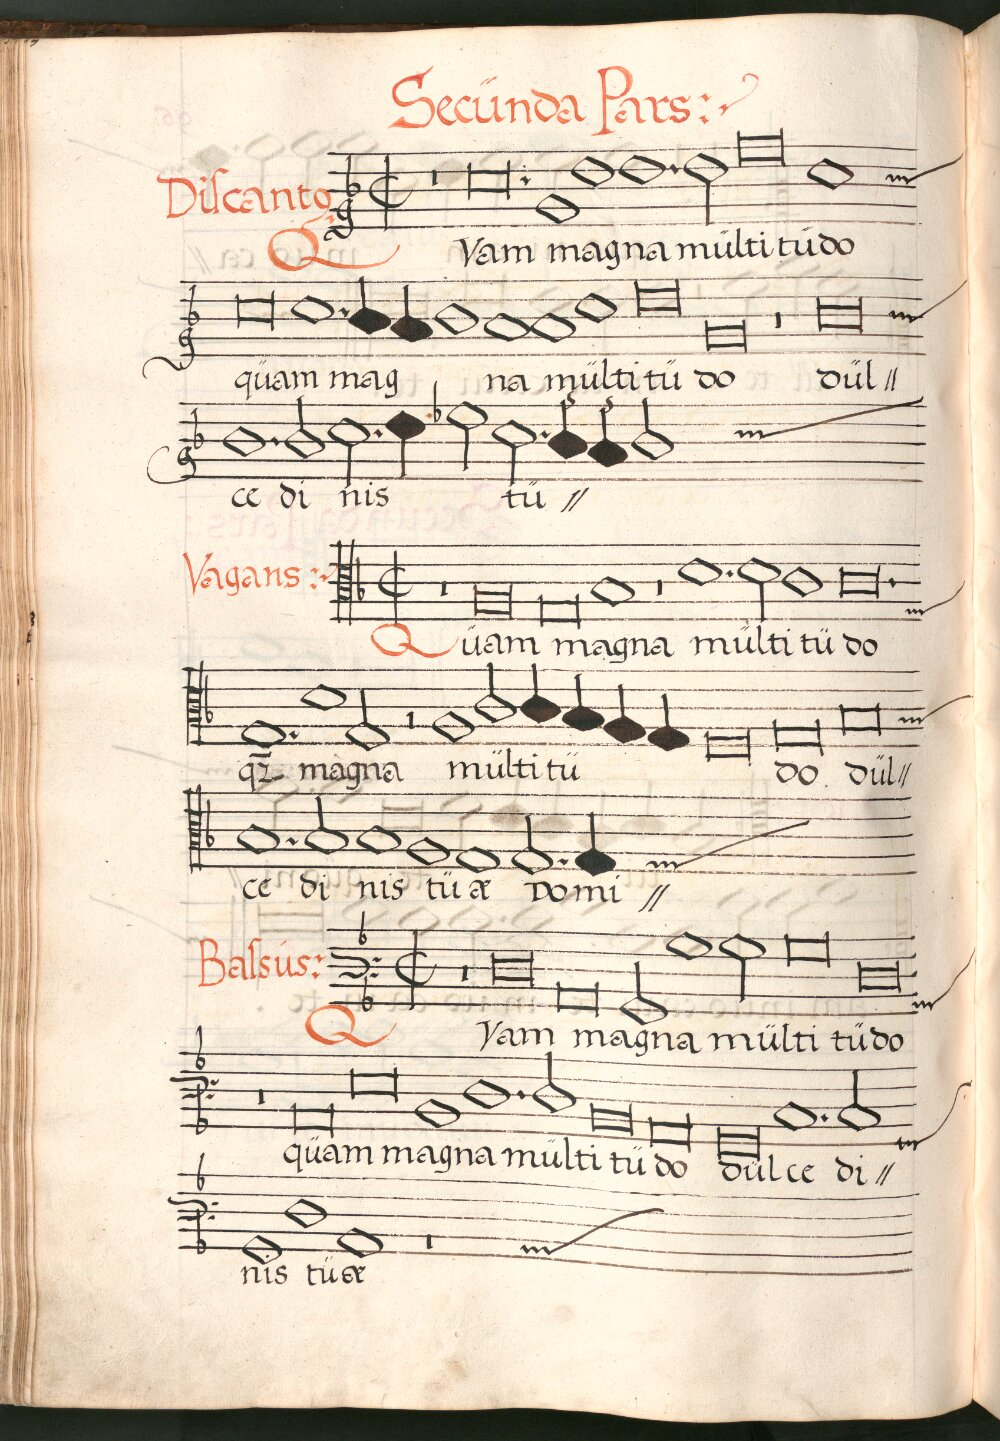 Secünda Pars:
Discanto
Qvam magna mültitüdo
qüam mag na mültitü do dül //
ce di nis tü //
Vagans:
Qüam magna mülti tü do
qz magna mültitü do dül //
ce di nis tü æ Domi //
Bassüs:
Qvam magna mülti tüdo
qüam magna mülti tü do dülce di //
nis tüæ